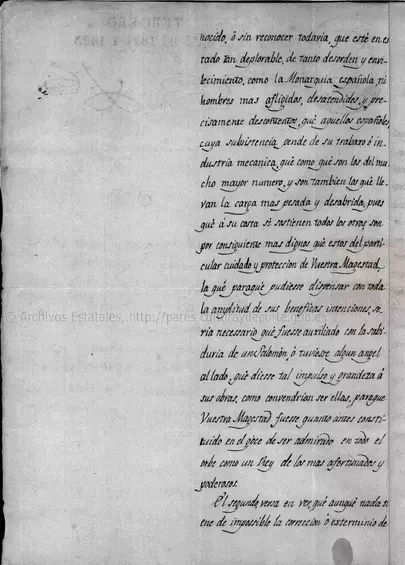 nocido, ó sin reconocer todavia, que esté en es
tado tan deplorable, de tanto desorden y envi
lecimiento, como la Monarquia española, ni
hombres mas afligidos, desatendidos, y pre
cisamente descontentos, qué aquellos españoles,
cuya subsistencia pende de su trabaxo ó in
dustria mecanica, qué como qué son los del mu
cho mayor numero, y son tambien los qué lle
van la carga mas pesada y desabrida, pues
qué á su costa sé sostienen todos los otros, son
por consiguiente mas dignos qué estos del parti
cular cuidado y proteccion de Vuestra Magestad,
la qué paraqué pudiesse dispensar con toda
la amplitud de sus beneficas intenciones, se
ria necesario qué fuesse auxiliado con la sabi
duria de un Salomón, ó tuviesse algun angel
al lado, qué diesse tal impulso y grandeza á
sus obras, como convendrian ser ellas, paraque
Vuestra Magestad fuesse quanto antes consti
tuido en el góce de ser admirado en todo el
orbe como un Rey de los mas afortunados y
poderosos.
El segundo, versa en ver, qué aunqué nada ti
ene de impossible la correcion ó exterminio de
© Archivos Estatales, http://pares.